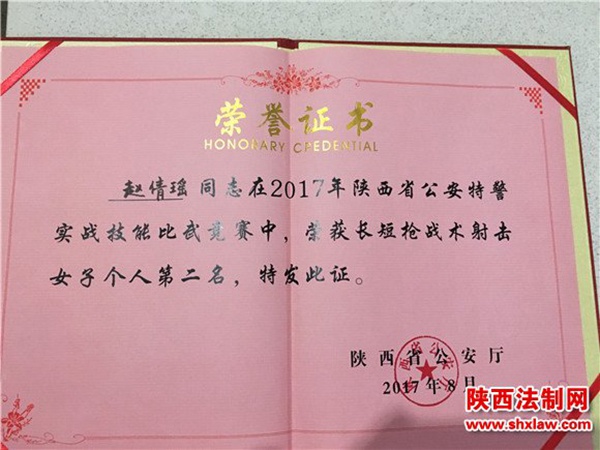 荣誉证书
HONORARY CREDENTIAL
赵倩瑶同志在2017年陕西省公安特警
实战技能比武竞赛中，荣获长短枪战术射击
女子个人第二名，特发此证。
陕西省公安厅
陕西省公安厅
2017年8月
陕西法制网
www.shxlaw.com